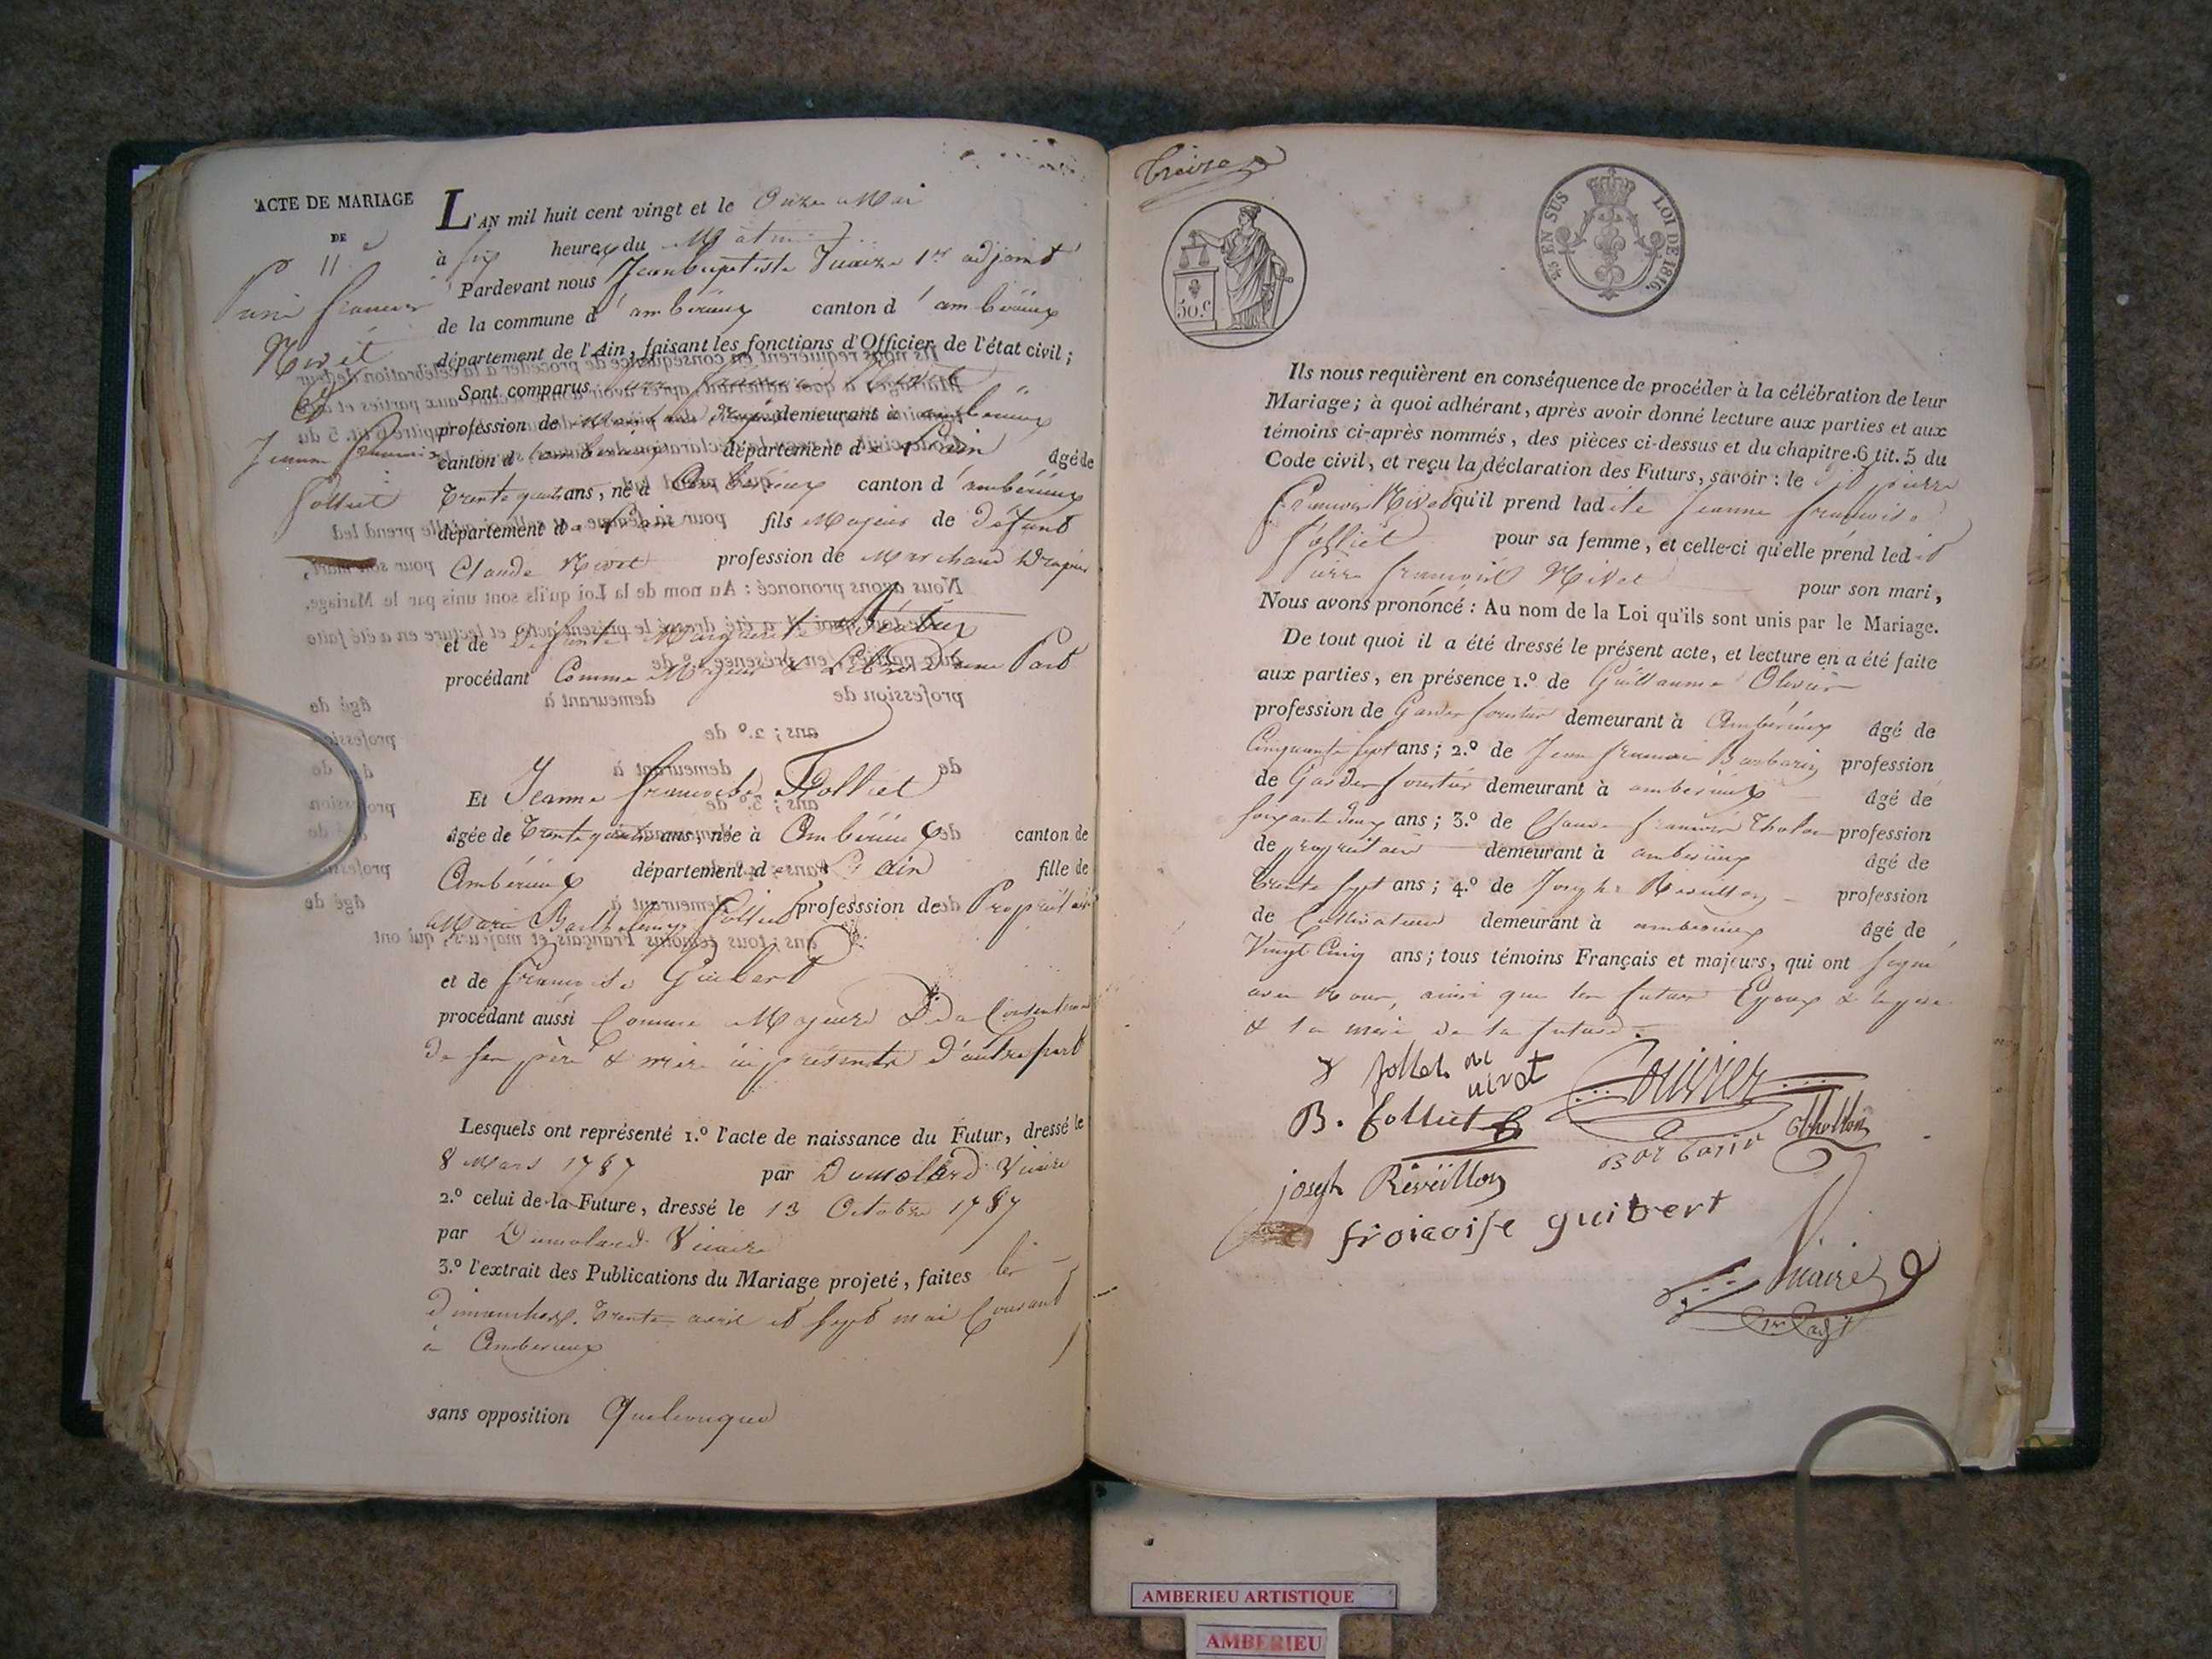 ACTE DE MARIAGE
DE
11e
Pierre françois
Nivét
&
Jeanne francoise
folliet
L'AN mil huit cent vingt et le Onze Mai
à six heures du Matin
Pardevant nous Jeanbaptiste Vicaire 1er adjoint
de la commune d'ambérieux canton d'ambérieux
département de l'Ain, faisant les fonctions d'Officier de l'état civil;
Sont comparus Pierre françois Nivét
profession de Marchand drapier demeurant à ambérieux
canton d'ambérieux département de l'ain âgé de
trente quatre ans, né à Ambérieux canton d'ambérieux
département de l'ain fils Majeur de défunt
Claude Nivet profession de Marchand Drapier
et de Défunte Marguerite
procédant Comme Majeur & Libre d'une Part
Et Jeanne francoise Folliet
âgée de Trente quatre ans, née à Ambérieux canton de
Ambérieux département de L'ain fille de
Marie Barthélemy folliet professsion de Propriétaire
et de francoise Guibert
procédant aussi Comme Majeure & du Consentement
de ses père & mère ici présents d'autre part
Lesquels ont représenté 1.º l'acte de naissance du Futur, dressé le
8 Mars 1787 par Dumolard Vicaire
2.º celui de la Future, dressé le 13 Octobre 1787
par Dumolard Vicaire
3.º l'extrait des Publications du Mariage projeté, faites les
dimanches trente avril et sept mai Courant
à Amberieux
sans opposition Quelconque
Treize
50.c
25 EN SUS
LOI DE 1816.
Ils nous requièrent en conséquence de procéder à la célébration de leur
Mariage; à quoi adhérant, après avoir donné lecture aux parties et aux
témoins ci-après nommés, des pièces ci-dessus et du chapitre 6 tit. 5 du
Code civil, et reçu la déclaration des Futurs, savoir : le dit pierre
françois Nivet qu'il prend ladite Jeanne francoise
folliet pour sa femme, et celle-ci qu'elle prend ledit
Pierre françois Nivet pour son mari,
Nous avons prononcé : Au nom de la Loi qu'ils sont unis par le Mariage.
De tout quoi il a été dressé le présent acte, et lecture en a été faite
aux parties, en présence 1.º de Guillaume Olivier
profession de Garde forestier demeurant à Ambérieux âgé de
Cinquante sept ans; 2.º de Jean francois Barbarin profession
de Garde forestier demeurant à amberieux âgé de
soixante deux ans; 3.º de Claude francois Tholon profession
de propriétaire demeurant à amberieux âgé de
trente sept ans; 4.º de Joseph Reveillon profession
de Cultivateur demeurant à amberieux âgé de
Vingt Cinq ans; tous témoins Français et majeurs, qui ont signé
avec Nous, ainsi que les futurs Epoux & le père
& la mère de la future.
follet
nivet
Olivier
B. folliet
Barbarin
Tholon
joseph Révëillon
froicoise guibert
Vicaire
1er adjt
AMBERIEU ARTISTIQUE
AMBERIEU